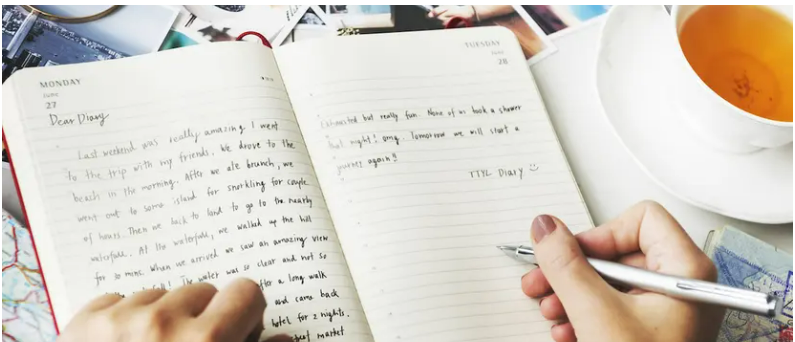 MONDAY
June
27
Dear Diary
Last weekend was really amazing! I went
to the trip with my friends. We drove to the
beach in the morning. After we ate brunch, we
went out to some island for snorkling for couple
of hours. Then we back to land to go to the nearby
waterfall. At the waterfall, we walked up the hill
for 30 mins. When we arrived we saw an amazing view
The water was so clear and not so
a long walk
and came back
hotel for 2 nights.
market
TUESDAY
June
28
Exhausted but really fun. None of us took a shower
that night! omg. Tomorrow we will start a
journey again!!
TTYL Diary